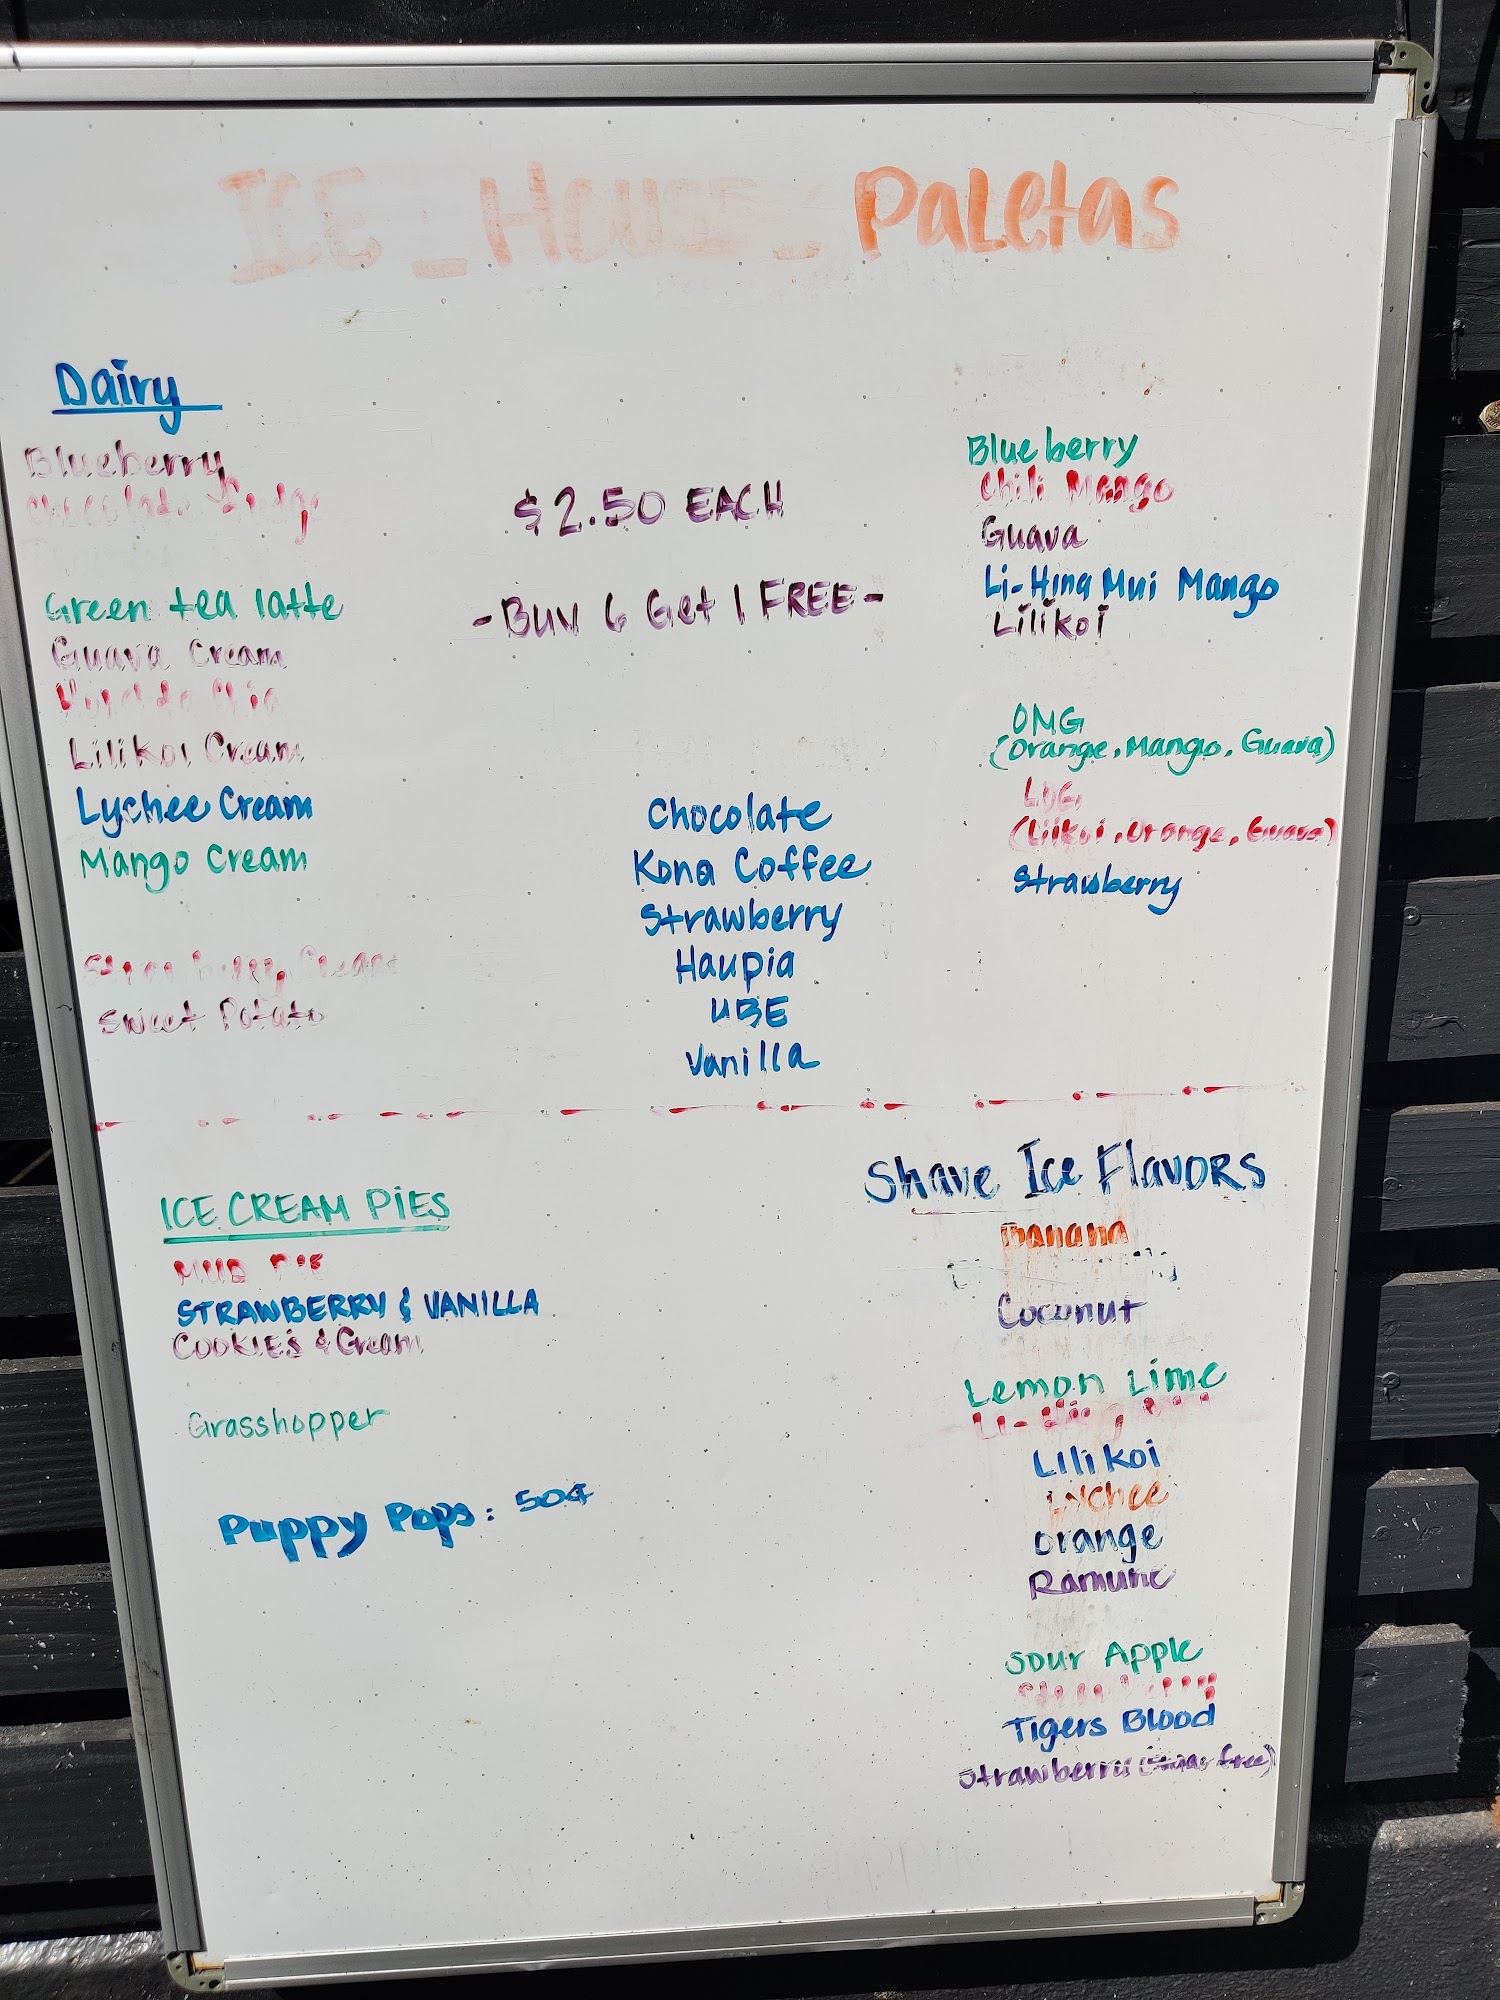 ICE - House - Paletas
Dairy
Blueberry
Chocolate Fudge
Green tea latte
Guava Cream
Lilikoi Cream
Lychee Cream
Mango Cream
Strawberry Cream
Sweet Potato
$2.50 EACH
-Buy 6 Get 1 FREE-
Chocolate
Kona Coffee
Strawberry
Haupia
UBE
Vanilla
Blueberry
Chili Mango
Guava
Li-Hing Mui Mango
Lilikoi
OMG
(Orange, Mango, Guava)
LOG
(Lilikoi, Orange, Guava)
Strawberry
ICE CREAM PIES
MUD PIE
STRAWBERRY & VANILLA
COOKIES & Cream
Grasshopper
Puppy Pops: 50¢
Shave Ice FLAVORS
Banana
Coconut
Lemon Lime
Li-Hing Mui
Lilikoi
Lychee
Orange
Ramune
Sour Apple
Strawberry
Tigers Blood
Strawberry (Sugar free)